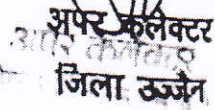 अपर कलेक्टर
जिला उज्जैन